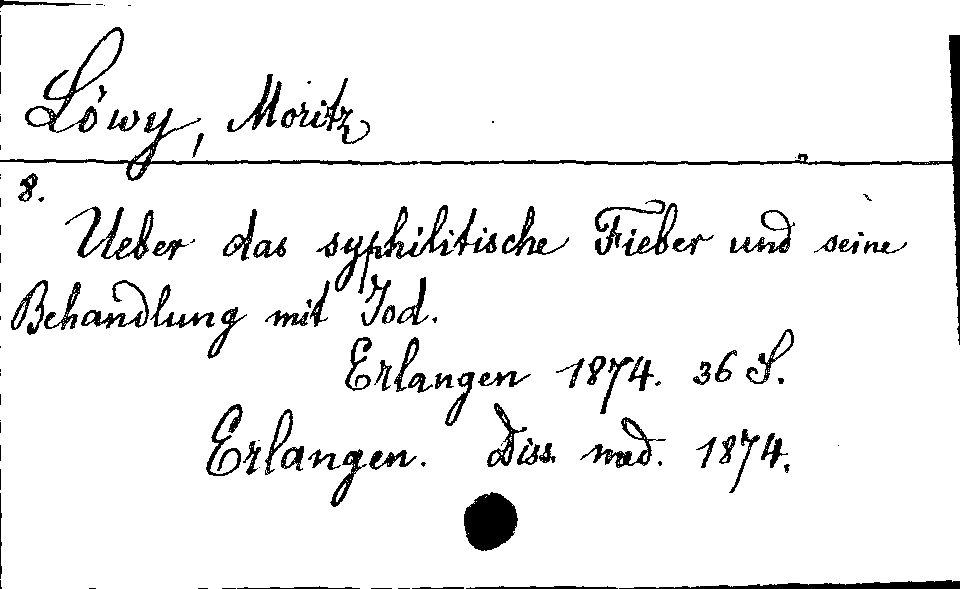 Löwy, Moritz
8.
Ueber das syphilitische Fieber und seine
Behandlung mit Jod.
Erlangen 1874. 36 S.
Erlangen. Diss. med. 1874.